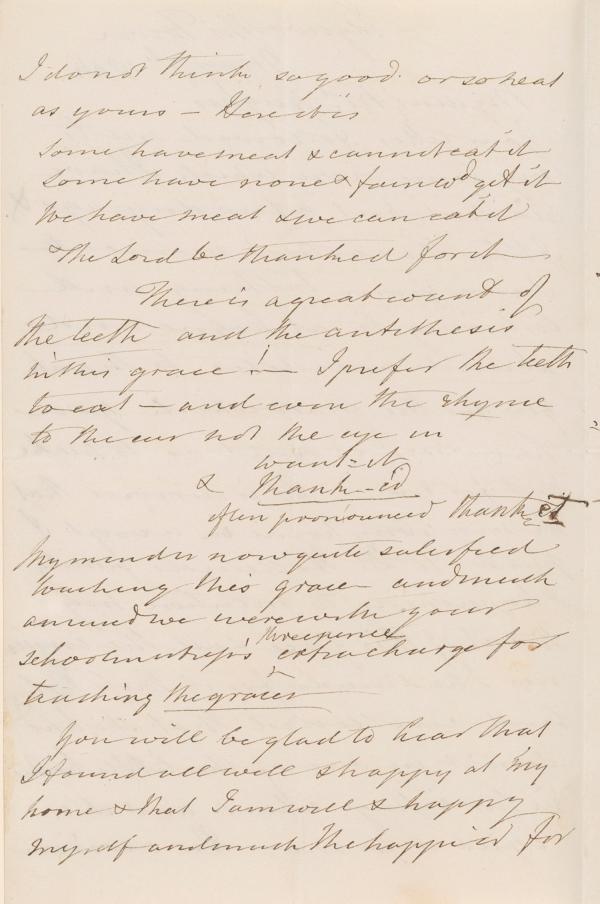 I do not think so good. or so neat
as yours – Here it is
Some have meat & cannot eat it
Some have none & fain wd get it
We have meat & we can eat it
& the Lord be thanked for it
There is a great want of
the teeth and the antithesis
in this grace! – I prefer the teeth
to eat – and even the rhyme
to the ear not the eye in
want-it
& thank-ed
often pronounced thank et
My mind is now quite satisfied
touching this grace and much
amused we were with your
schoolmistress's threepence extra charge for
teaching the graces
You will be glad to hear that
I found all well & happy at my
home & that I am well & happy
myself and much the happier for